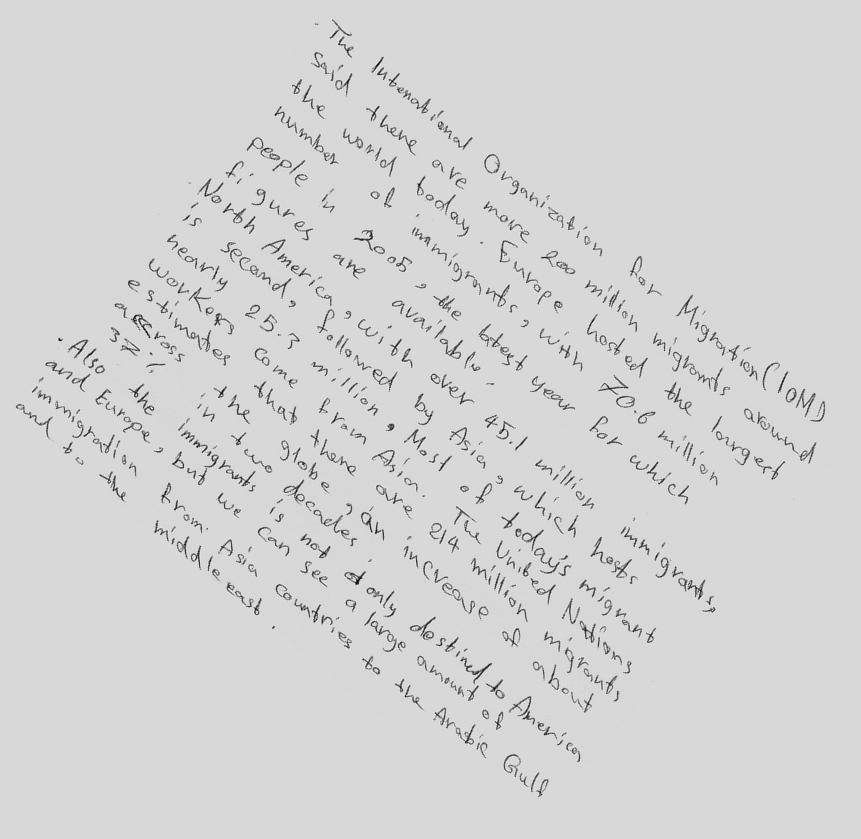 . The International Organization for Migration (IOM)
said there are more 200 million migrants around
the world today. Europe hosted the largest
number of immigrants, with 70.6 million
people in 2005, the latest year for which
figures are available.
. North America, with over 45.1 million immigrants,
is second, followed by Asia, which hosts
nearly 25.3 million, Most of today's migrant
workers come from Asia. The United Nations
estimates that there are 214 million migrants
across the globe, an increase of about
37% in two decades
. Also the immigrants is not only destined to American
and Europe, but we can see a large amount of
immigration from Asia countries to the Arabic Gulf
and to the middle east.